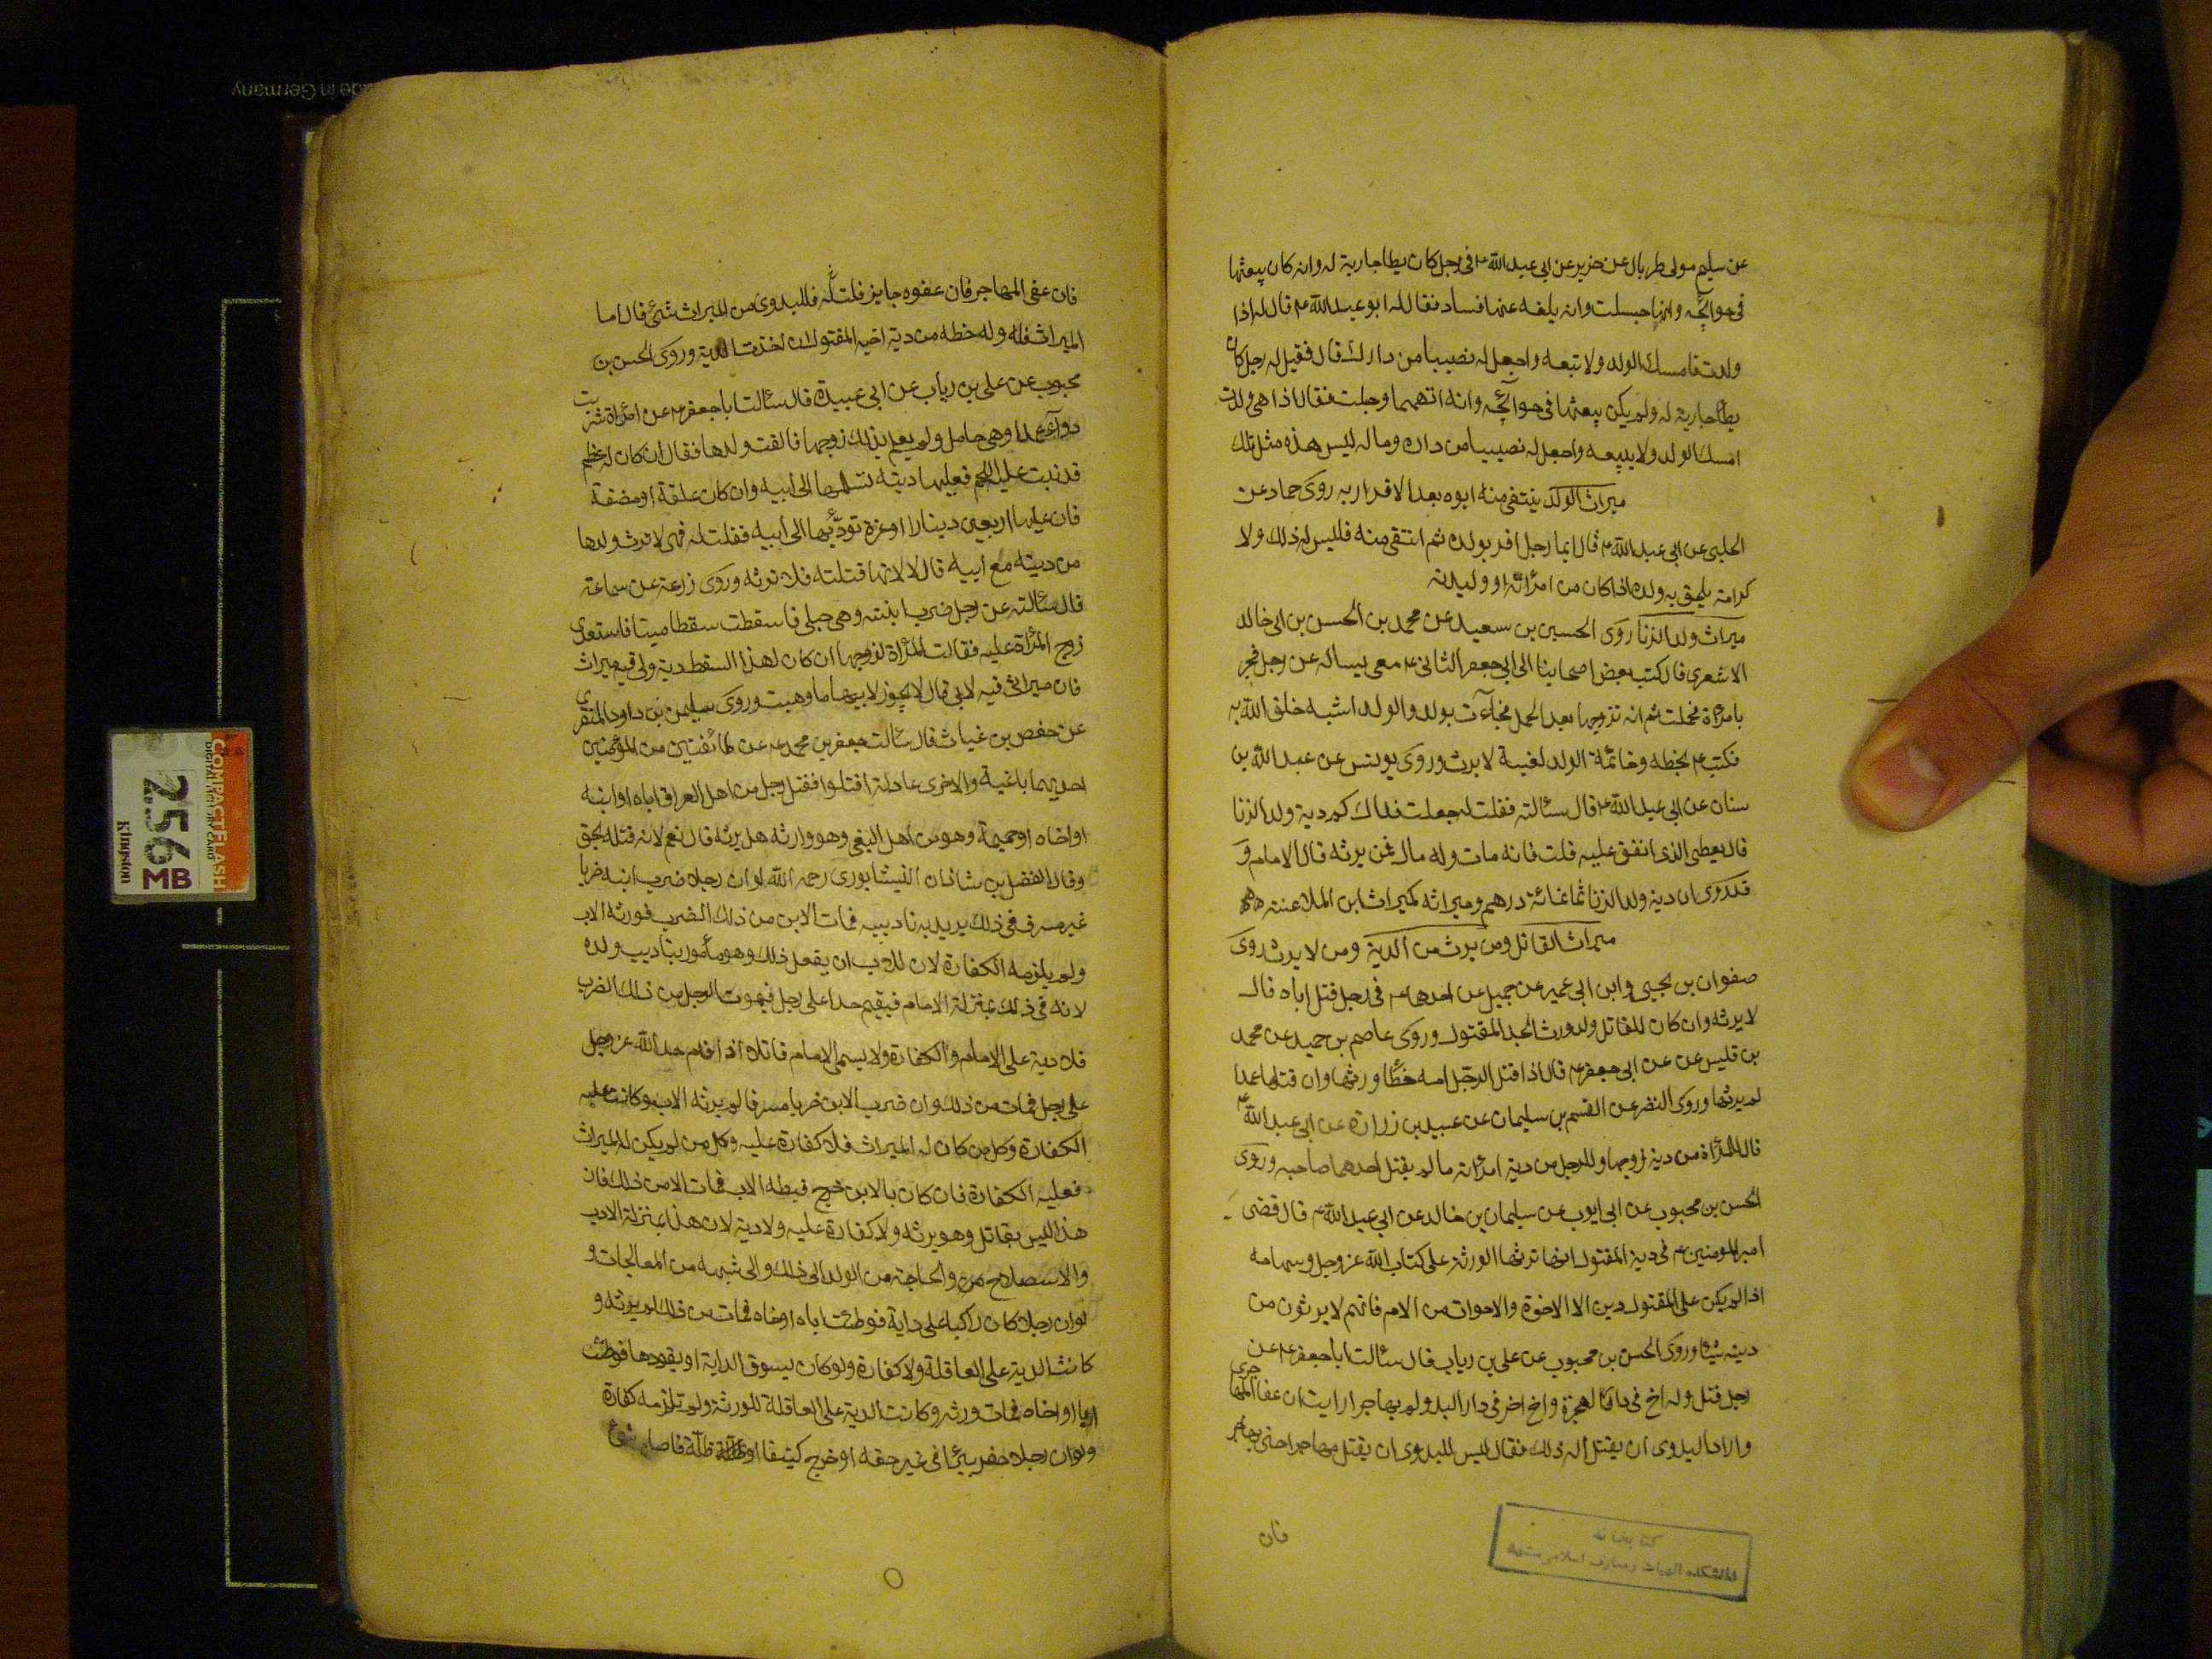 عن سليم مولى طربال عن حريز عن ابى عبد الله ع فى رجل كان يطا جارية له وانه كان يبعثها
فى حوائجه وانها حبلت وانه بلغه عنها فساد فقال له ابو عبد الله ع قال له اذا
ولدت فامسك الولد ولا تبعه واجعل له نصيبا من دارك قال فقيل له رجل كان
يطأ جارية له ولم يكن يبعثها فى حوائجه وانه اتهمها وحبلت فقال اذا هى ولدت
امسك الولد ولا يبيعه واجعل له نصيبا من داره وماله ليس هذه مثل تلك
ميراث الولد ينتفى منه ابوه بعد الاقرار به روى حماد عن
الحلبى عن ابى عبد الله ع قال ايما رجل اقر بولده ثم انتفى منه فليس له ذلك ولا
كرامة يلحق به ولده اذا كان من امرأته او وليدته
ميراث ولد الزنا روى الحسين بن سعيد عن محمد بن الحسن بن ابى خالد
الاشعرى قال كتب بعض اصحابنا الى ابى جعفر الثانى ع معى يساله عن رجل فجر
بامرأة فحبلت ثم انه تزوجها بعد الحمل فجاءت بولد والولد اشبه خلق الله به
فكتب ع بخطه وخاتمه الولد لغية لا يرث وروى يونس عن عبد الله بن
سنان عن ابى عبد الله ع قال سئالته فقلت له جعلت فداك كم دية ولد الزنا
قال يعطى الذى انفق عليه قلت فانه مات وله مال فمن يرثه قال الامام و
قد روى ان دية ولد الزنا ثمانمائة درهم وميراثه كميراث ابن الملاعنة
ميراث القاتل ومن يرث من الدية ومن لا يرث روى
صفوان بن يحيى وابن ابى عمير عن جميل عن احدهما ع فى رجل قتل اباه قال
لا يرثه وان كان للقاتل ولد ورث الجد المقتول وروى عاصم بن حميد عن محمد
بن قليس عن عن ابى جعفر ع قال اذا قتل الرجل امه خطأ ورثها وان قتلها عمدا
لم يرثها وروى النضر عن القسم بن سليمان عن عبيد بن زرارة عن ابى عبد الله ع
قال للمرأة من دية زوجها وللرجل من دية امرأته ما لم يقتل احدهما صاحبه وروى
الحسن بن محبوب عن ابى ايوب عن سليمان بن خالد عن ابى عبد الله ع قال قضى
امير المومنين ع فى دية المقتول انها ترثها الورثة على كتاب الله عز وجل وسهامه
اذا لم يكن على المقتول دين الا الاخوة والاخوات من الام فانهم لا يرثون من
ديته شيئا وروى الحسن بن محبوب عن على بن رياب قال سئالت ابا جعفر ع عن
رجل قتل وله اخ فى دار الهجرة واخ اخر فى دار البدو لم يهاجر ارايت ان عفا المهاجرى
واراد البدوى ان يقتل اله ذلك فقال ليس للبدوى ان يقتل مهاجرا حتى يهاجر
فان
كتابخانه
دانشكده الهيات ومعارف اسلامى مشهد
فان عفى المهاجر فان عفوه جايز قلت له فللبدوى من الميراث شئ قال اما
الميراث فله وله حظه من دية اخيه المقتول ان اخذت الدية وروى الحسن بن
محبوب عن على بن رياب عن ابى عبيدة قال سئالت ابا جعفر ع عن امرأة شربت
دواء عمدا وهى حامل ولم يعلم بذلك زوجها فالقت ولدها فقال ان كان له عظم
قد نبت عليه اللحم فعليها ديته تسلمها الى ابيه وان كان علقة او مضغة
فان عليها اربعين دينارا او غرة تؤديها الى ابيه فقلت له فهى لا ترث ولدها
من ديته مع ابيه قال لا لانها قتلته فلا ترثه وروى زرعة عن سماعة
قال سئالته عن رجل ضرب ابنته وهى حبلى فاسقطت سقطا ميتا فاستعدى
زوج المرأة عليه فقالت المرأة لزوجها ان كان لهذا السقط دية ولى فيه ميراث
فان ميراثى فيه لابى قال لا يجوز لابيها ما وهبت وروى سليمن بن داود المنقرى
عن حفص بن غياث قال سئالت جعفر بن محمد ع عن طائفتين من المؤمنين
احديهما باغية والاخرى عادلة اقتلوا فقتل رجل من اهل العراق اباه او ابنه
او اخاه او حميمه وهو من اهل البغى وهو وارثه هل يرثه قال نعم لانه قتله بحق
وقال الفضل بن شاذان النيشابورى رحمه الله لو ان رجلا ضرب ابنه ضربا
غير مسرف فى ذلك يريد به تاديبه فمات الابن من ذلك الضرب فورثه الاب
ولم يلزمه الكفارة لان للاب ان يفعل ذلك وهو مأمور بتاديب ولده
لانه فى ذلك بمنزلة الامام فيقيم حدا على رجل فيموت الرجل من ذلك الضرب
فلا دية على الامام ولا كفارة ولا يسمى الامام قاتلا اذا اقام حد الله عز وجل
على رجل فمات من ذلك وان ضرب الابن ضربا مسرفا لم يرثه الاب وكانت عليه
الكفارة وكل من كان له الميراث فلا كفارة عليه وكل من لم يكن له الميراث
فعليه الكفارة فان كان بالابن جرح فبطه الاب فمات الابن من ذلك فان
هذا ليس بقاتل وهو يرثه ولا كفارة عليه ولا دية لان هذا بمنزلة الادب
والاستصلاح والحاجة من الولد الى ذلك والى شبهه من المعالجات و
لو ان رجلا كان راكبا على دابة فوطئت اباه او اخاه فمات من ذلك لم يرثه و
كانت الدية على العاقلة ولا كفارة ولو كان يسوق الدابة او يقودها فوطئت
اباه او اخاه فمات ورثه وكانت الدية على العاقلة للورثة ولم تلزمه كفارة
ولو ان رجلا حفر بئرا فى غير حقه او اخرج كنيفا او ظلة فاصاب شئ
COMPACTFLASH
DIGITAL MEMORY CARD
256 MB
Kingston
Made in Germany